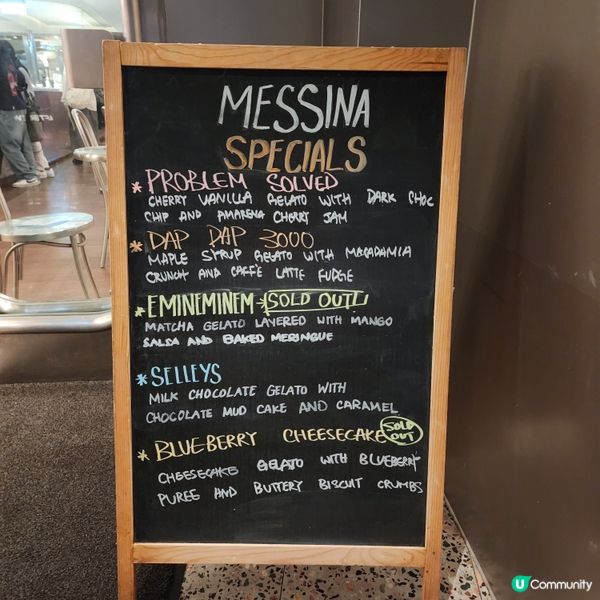 MESSINA
SPECIALS
* PROBLEM SOLVED
CHERRY VANILLA GELATO WITH DARK CHOC
CHIP AND AMARENA CHERRY JAM
* DAP DAP 3000
MAPLE SYRUP GELATO WITH MACADAMIA
CRUNCH AND CAFFE LATTE FUDGE
* EMINEMINEM * SOLD OUT!
MATCHA GELATO LAYERED WITH MANGO
SALSA AND BAKED MERINGUE
* SELLEYS
MILK CHOCOLATE GELATO WITH
CHOCOLATE MUD CAKE AND CARAMEL
* BLUEBERRY CHEESECAKE SOLD OUT
CHEESECAKE GELATO WITH BLUEBERRY
PUREE AND BUTTERY BISCUIT CRUMBS
U Community